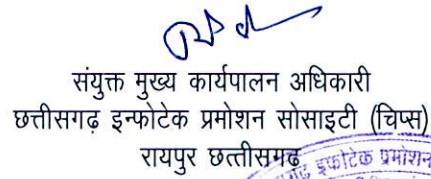 संयुक्त मुख्य कार्यपालन अधिकारी
छत्तीसगढ़ इन्फोटेक प्रमोशन सोसाइटी (चिप्स)
रायपुर छत्तीसगढ़
इंफोटेक प्रमोशन